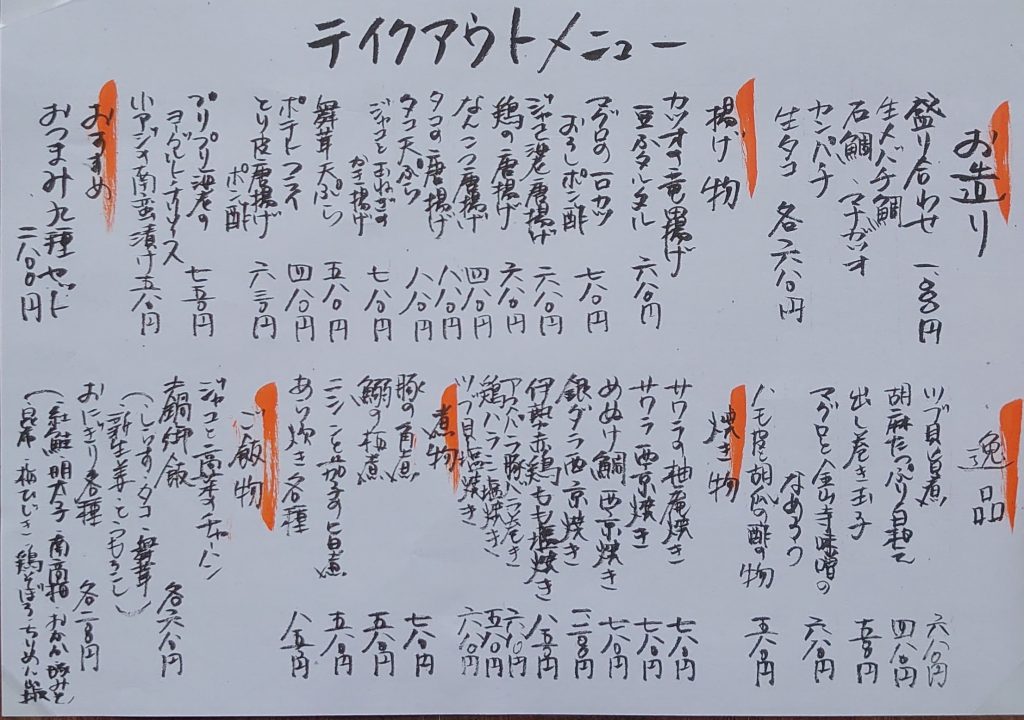 テイクアウトメニュー
お造り
盛り合わせ 一八〇〇円
生メバチ鮪
石鯛 マナガツオ
カンパチ
生タコ 各六八〇円
揚げ物
カツオの竜田揚げ
豆ふタルタル 六八〇円
マグロの一口カツ
おろしポン酢 七八〇円
ジャコと海老の唐揚げ 六八〇円
鶏の唐揚げ 六八〇円
なんこつ唐揚げ 四八〇円
タコの唐揚げ 八八〇円
タコ天ぷら 八八〇円
ジャコと玉ねぎの
かき揚げ 七八〇円
舞茸天ぷら 五八〇円
ポテトフライ 四八〇円
とり皮唐揚げ
ポン酢 六三〇円
プリプリ海老の
ヨーグルトソース 七五〇円
小アジの南蛮漬け 五八〇円
おすすめ
おつまみ九種セット
二八〇〇円
逸品
ツブ貝旨煮 六八〇円
胡麻たっぷり白和え 四八〇円
出し巻き玉子
マグロと金山寺味噌の
なめろう 六八〇円
ハモ皮と胡瓜の酢の物 五八〇円
焼き物
サワラの柚庵焼き 七八〇円
サワラ西京焼き 七八〇円
めぬけ鯛西京焼き 七八〇円
銀ダラ西京焼き
伊勢赤鶏もも塩焼き 八五〇円
アスパラ豚バラ巻き 六八〇円
鶏ハラミ塩焼き 五八〇円
ツブ貝塩焼き 六八〇円
煮物
豚の角煮 七八〇円
鰯の梅煮 五八〇円
ニシンと茄子の旨煮 五八〇円
あら炊き各種 八五〇円
ご飯物
ジャコと高菜のチャーハン
土鍋御飯 各六八〇円
(しらす・タコ・舞茸
新生姜・とうもろこし)
おにぎり各種 各二八〇円
(紅鮭 明太子 南高梅・おかか
昆布 梅ひじき 鶏そぼろ・ちりめん山椒